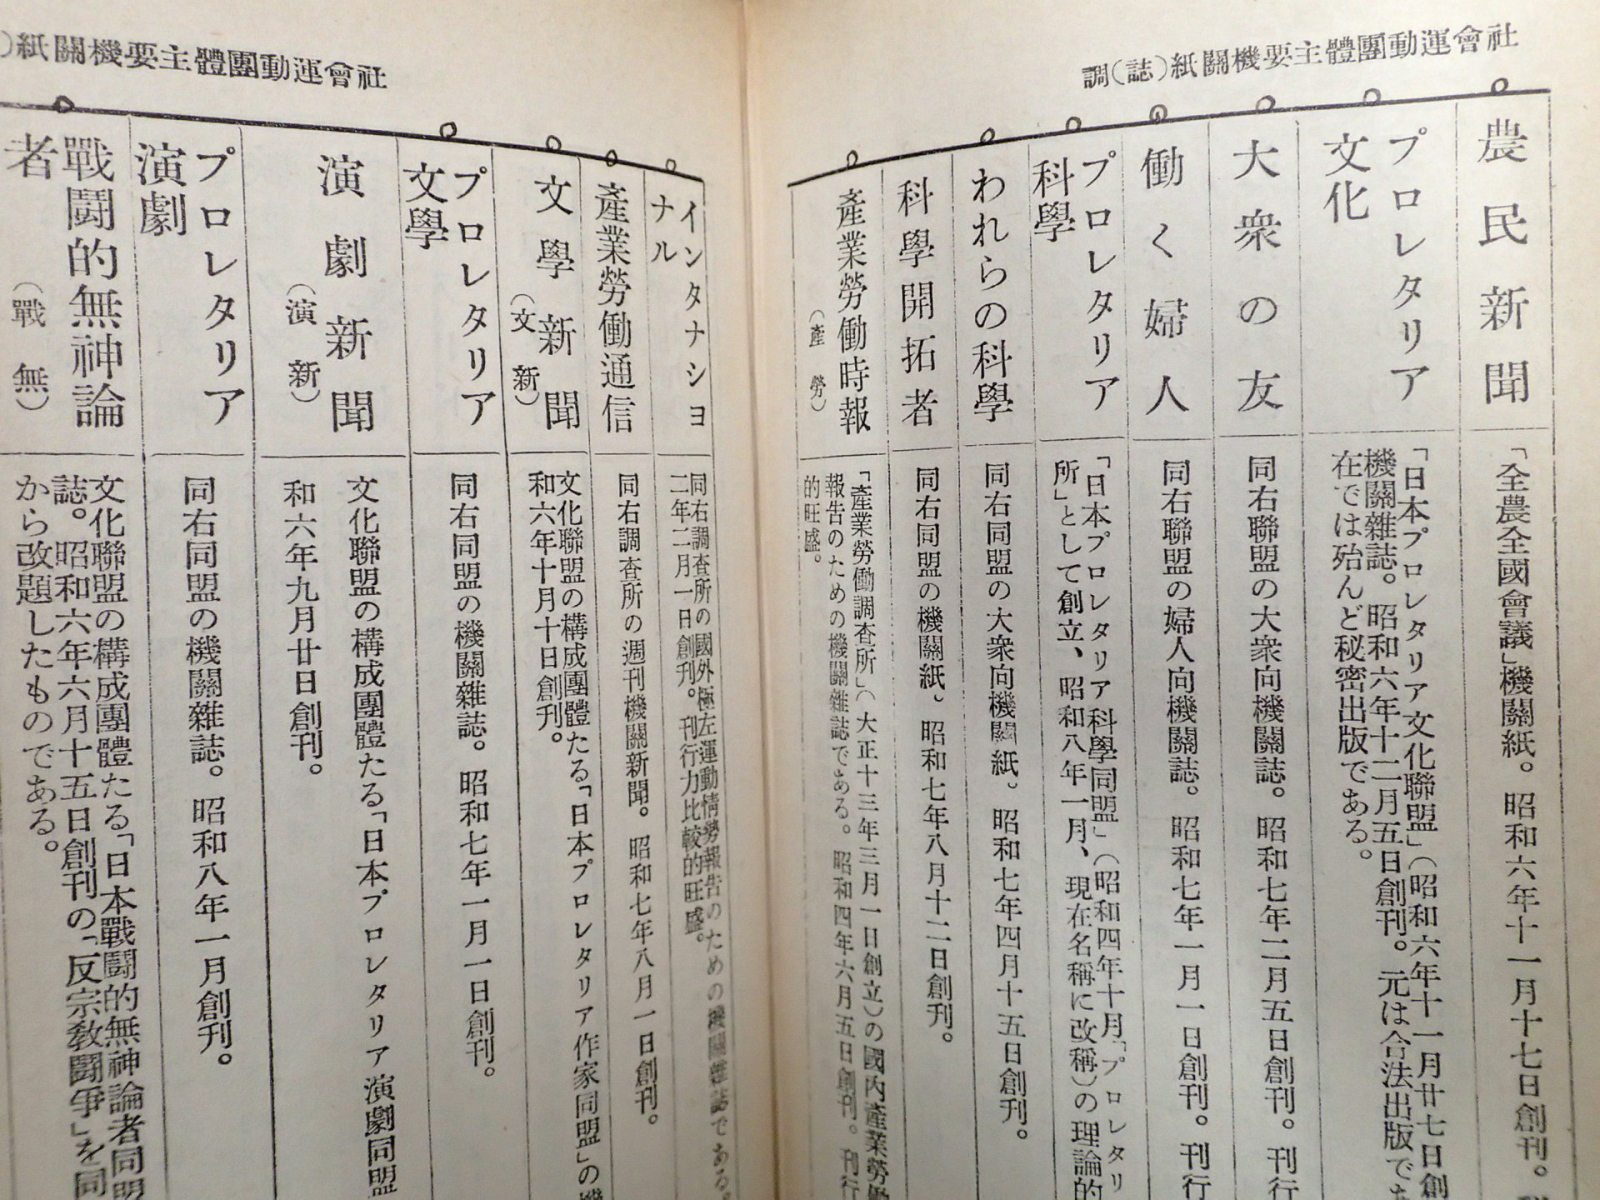 社會運動團體主要機關紙(誌)調
農民新聞
「全農全國會議」機關紙。昭和六年十一月十七日創刊。
プロレタリア
文化
「日本プロレタリア文化聯盟」(昭和六年十一月廿七日創
機關雜誌。昭和六年十二月五日創刊。元は合法出版で
在では殆んど秘密出版である。
大衆の友
同右聯盟の大衆向機關誌。昭和七年二月五日創刊。刊行
働く婦人
同右聯盟の婦人向機關誌。昭和七年一月一日創刊。刊行
プロレタリア
科學
「日本プロレタリア科學同盟」(昭和四年十月「プロレタリ
所」として創立、昭和八年一月、現在名稱に改稱)の理論的
われらの科學
同右同盟の大衆向機關紙。昭和七年四月十五日創刊。
科學開拓者
同右同盟の機關紙。昭和七年八月十二日創刊。
產業勞働時報
(產勞)
「產業勞働調査所」(大正十三年三月一日創立)の國內產業勞働
報告のための機關雜誌である。昭和四年六月五日創刊。刊行
的旺盛。
社會運動團體主要機關紙
インタナショ
ナル
同右調査所の國外極左運動情勢報告のための機關雜誌である。
二年二月一日創刊。刊行力比較的旺盛。
產業勞働通信
同右調査所の週刊機關新聞。昭和七年八月一日創刊。
文學新聞
(文新)
文化聯盟の構成團體たる「日本プロレタリア作家同盟」の機
和六年十月十日創刊。
プロレタリア
文學
同右同盟の機關雜誌。昭和七年一月一日創刊。
演劇新聞
(演新)
文化聯盟の構成團體たる「日本プロレタリア演劇同盟
和六年九月廿日創刊。
プロレタリア
演劇
同右同盟の機關雜誌。昭和八年一月創刊。
戰鬪的無神論
者
(戰無)
文化聯盟の構成團體たる「日本戰鬪的無神論者同盟
誌。昭和六年六月十五日創刊の「反宗教鬪爭」を同
から改題したものである。